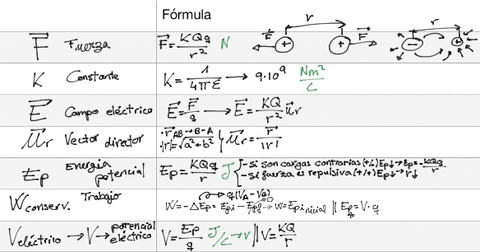 Fórmula
F⃗ Fuerza F⃗ = KQq/r² N r F⃗ + + F⃗ r - +
K Constante K = 1/4πε → 9·10⁹ Nm²/C
E⃗ Campo eléctrico E⃗ = F⃗/q → E⃗ = KQ/r² u⃗r
u⃗r Vector director · r⃗ AB → B-A · |r| = √a²+b² } u⃗r = r⃗/|r|
Ep Energía potencial Ep = KQq/r J { - Si son cargas contrarias (+/-) Ep↓ → Ep = -KQq/r
- Si fuerza es repulsiva (+/+) Ep↓ → r↓
Wconserv. Trabajo W = -ΔEp = Epi - Epf → W = Epinicial || Ep = V·q
q(VA-VB)
Veléctrico → V → potencial eléctrico V = Ep/q J/C → V || V = KQ/r